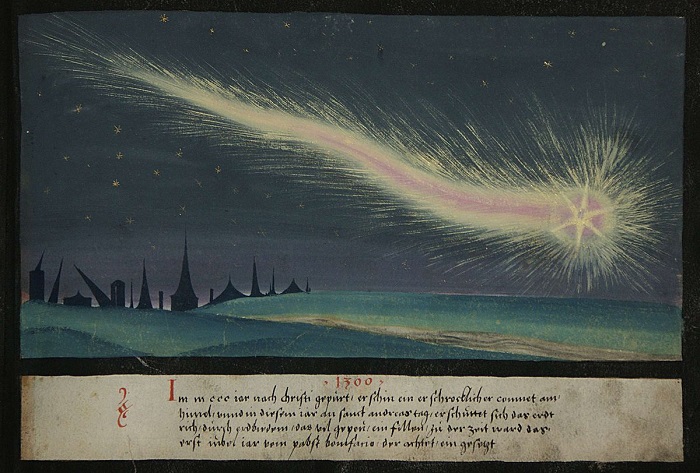 · 1300 ·
Im m ccc iar nach christi gepurt / erschin ein erschrocklicher commet am
himel / vnnd in disem iar an sanct andreas tag / erschuttet sich das erdt
rich / durch erdbidem / das vil gepeu ein fiellen / zu der zeit ward das
erst iubel iar vom pabst bonifacio / der achtet / ein gesetzt